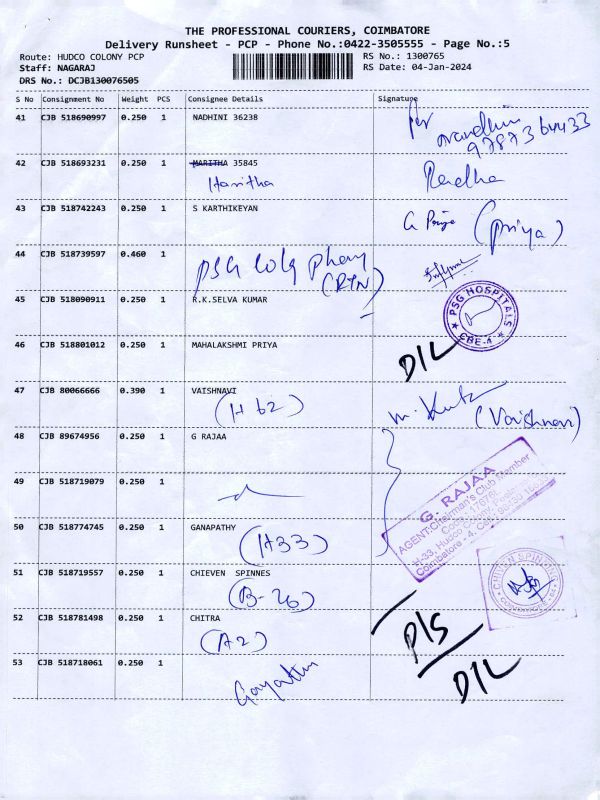 THE PROFESSIONAL COURIERS, COIMBATORE
Delivery Runsheet - PCP - Phone No.:0422-3505555 - Page No.:5
Route: HUDCO COLONY PCP
RS No.: 1300765
Staff: NAGARAJ
RS Date: 04-Jan-2024
DRS No.: DCJB130076505
S No Consignment No Weight PCS Consignee Details Signature
41 CJB 518690997 0.250 1 NADHINI 36238
9787364433
42 CJB 518693231 0.250 1 MARITHA 35845
Haritha
Radha
43 CJB 518742243 0.250 1 S KARTHIKEYAN
G Priya (priya)
44 CJB 518739597 0.460 1
PSG
(RTN)
45 CJB 518090911 0.250 1 R.K.SELVA KUMAR
PSG HOSPITALS
CBE-4
46 CJB 518801012 0.250 1 MAHALAKSHMI PRIYA
D/L
47 CJB 80066666 0.390 1 VAISHNAVI
(H 62)
(Vaishnavi)
48 CJB 89674956 0.250 1 G RAJAA
49 CJB 518719079 0.250 1
G. RAJAA
AGENT:Chairman's Club Member
H-33, Hudco Colony,
Coimbatore - 4.
50 CJB 518774745 0.250 1 GANAPATHY
(H33)
51 CJB 518719557 0.250 1 CHIEVEN SPINNES
(B-26)
COIMBATORE
52 CJB 518781498 0.250 1 CHITRA
(A2)
P/S
53 CJB 518718061 0.250 1
Gayathri
D/L